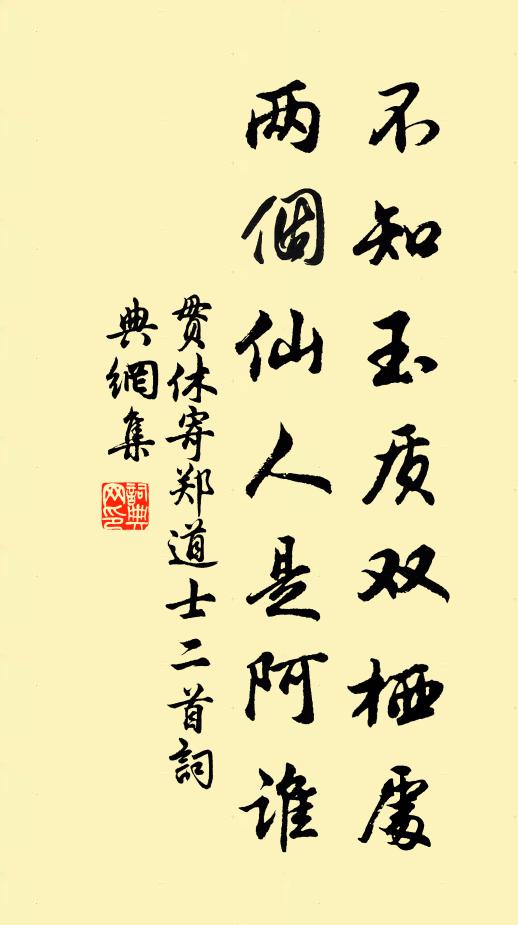 不知玉质双栖處
两個仙人是阿谁
贯休寄郑道士二首詞
典網集
詞典网印